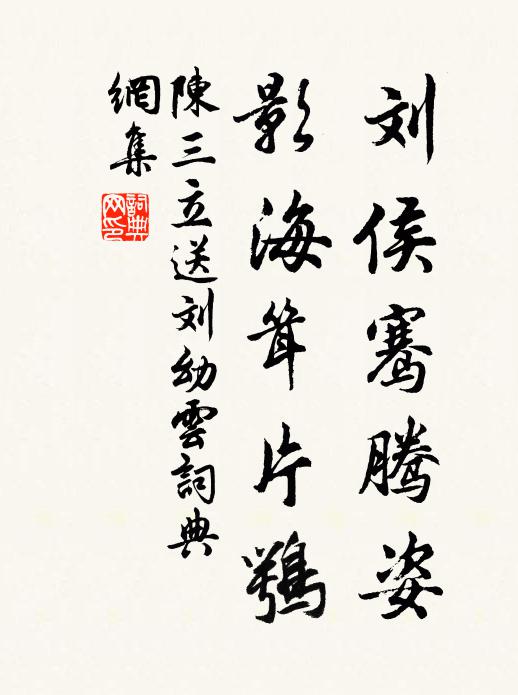 刘侯骞腾姿
影海耸片鶚
陳三立送刘幼雲詞典
網集
詞典
网印